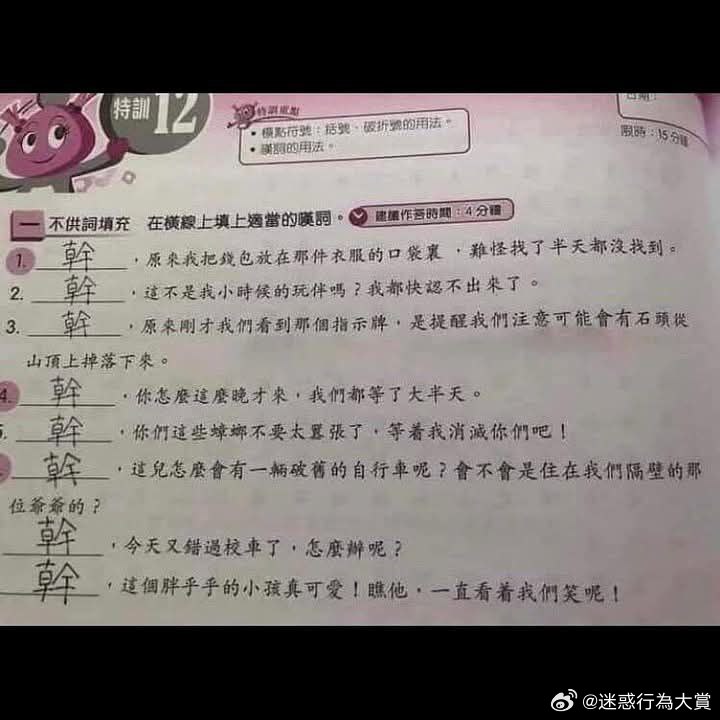 特訓 12
特訓重點
• 標點符號：括號、破折號的用法。
• 嘆詞的用法。
日期：
限時：15分鐘
一 不供詞填充 在橫線上填上適當的嘆詞。 建議作答時間：4分鐘
1. 幹，原來我把錢包放在那件衣服的口袋裏，難怪找了半天都沒找到。
2. 幹，這不是我小時候的玩伴嗎？我都快認不出來了。
3. 幹，原來剛才我們看到那個指示牌，是提醒我們注意可能會有石頭從
山頂上掉落下來。
4. 幹，你怎麼這麼晚才來，我們都等了大半天。
5. 幹，你們這些蟑螂不要太囂張了，等着我消滅你們吧！
幹，這兒怎麼會有一輛破舊的自行車呢？會不會是住在我們隔壁的那
位爺爺的？
幹，今天又錯過校車了，怎麼辦呢？
幹，這個胖乎乎的小孩真可愛！瞧他，一直看着我們笑呢！
@迷惑行為大賞